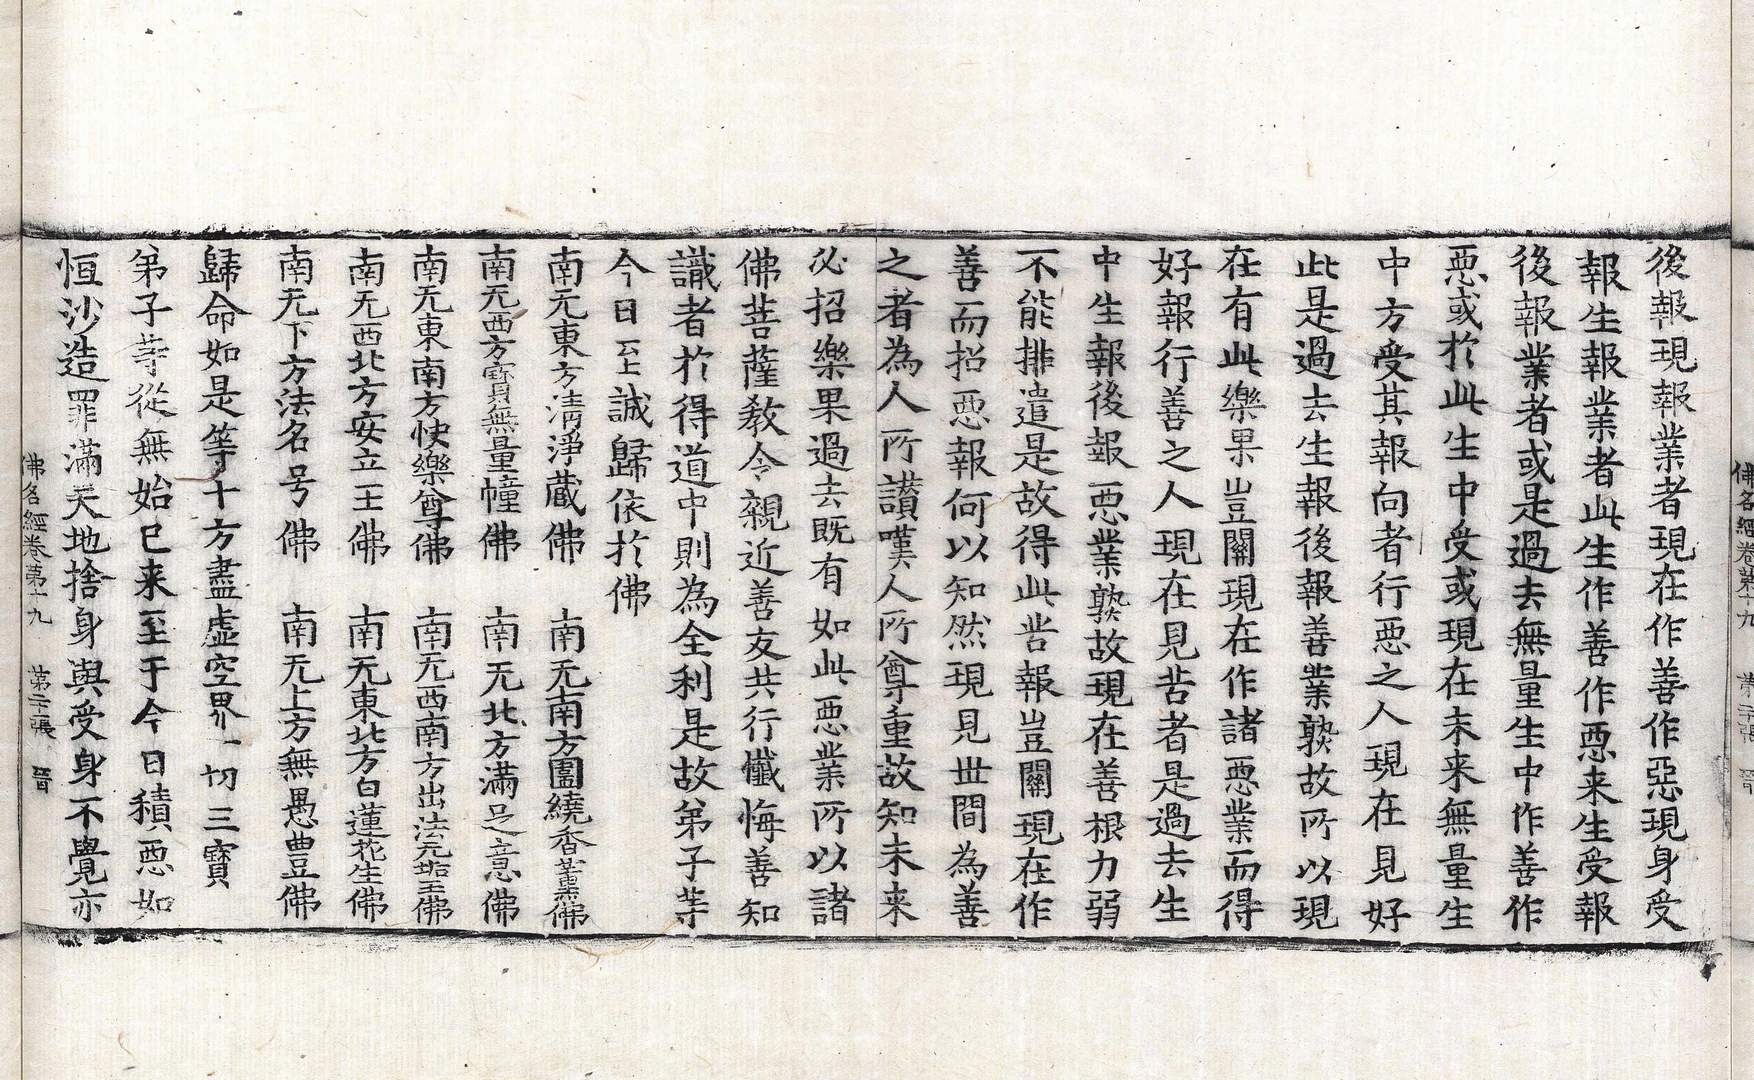 後報現報業者現在作善作惡現身受
報生報業者此生作善作悪来生受報
後報業者或是過去無量生中作善作
悪或扵此生中受或現在未来無量生
中方受其報向者行悪之人現在見好
此是過去生報後報善業熟故所以現
在有此樂果豈關現在作諸悪業而得
好報行善之人現在見苦者是過去生
中生報後報悪業熟故現在善根力弱
不能排遣是故得此苦報豈關現在作
善而招悪報何以知然現見世間為善
之者為人所讃嘆人所尊重故知未来
必招樂果過去既有如此悪業所以諸
佛菩薩教令親近善友共行懺悔善知
識者扵得道中則為全利是故弟子等
今日云上誠歸依扵佛
南无東方清淨蔵佛　南无南方圍繞香薰佛
南无西方寳無量幢佛　南无北方滿足意佛
南无東南方快樂尊佛　南无西南方出法无垢王佛
南无西北方安立王佛　南无東北方白蓮花生佛
南无下方法名号佛　南无上方無愚豊佛
歸命如是等十方盡虛空界一切三寳
弟子等從無始已来至于今日積悪如
恒沙造罪滿天地捨身與受身不覺亦
佛名經卷第十九　第二十張　晉